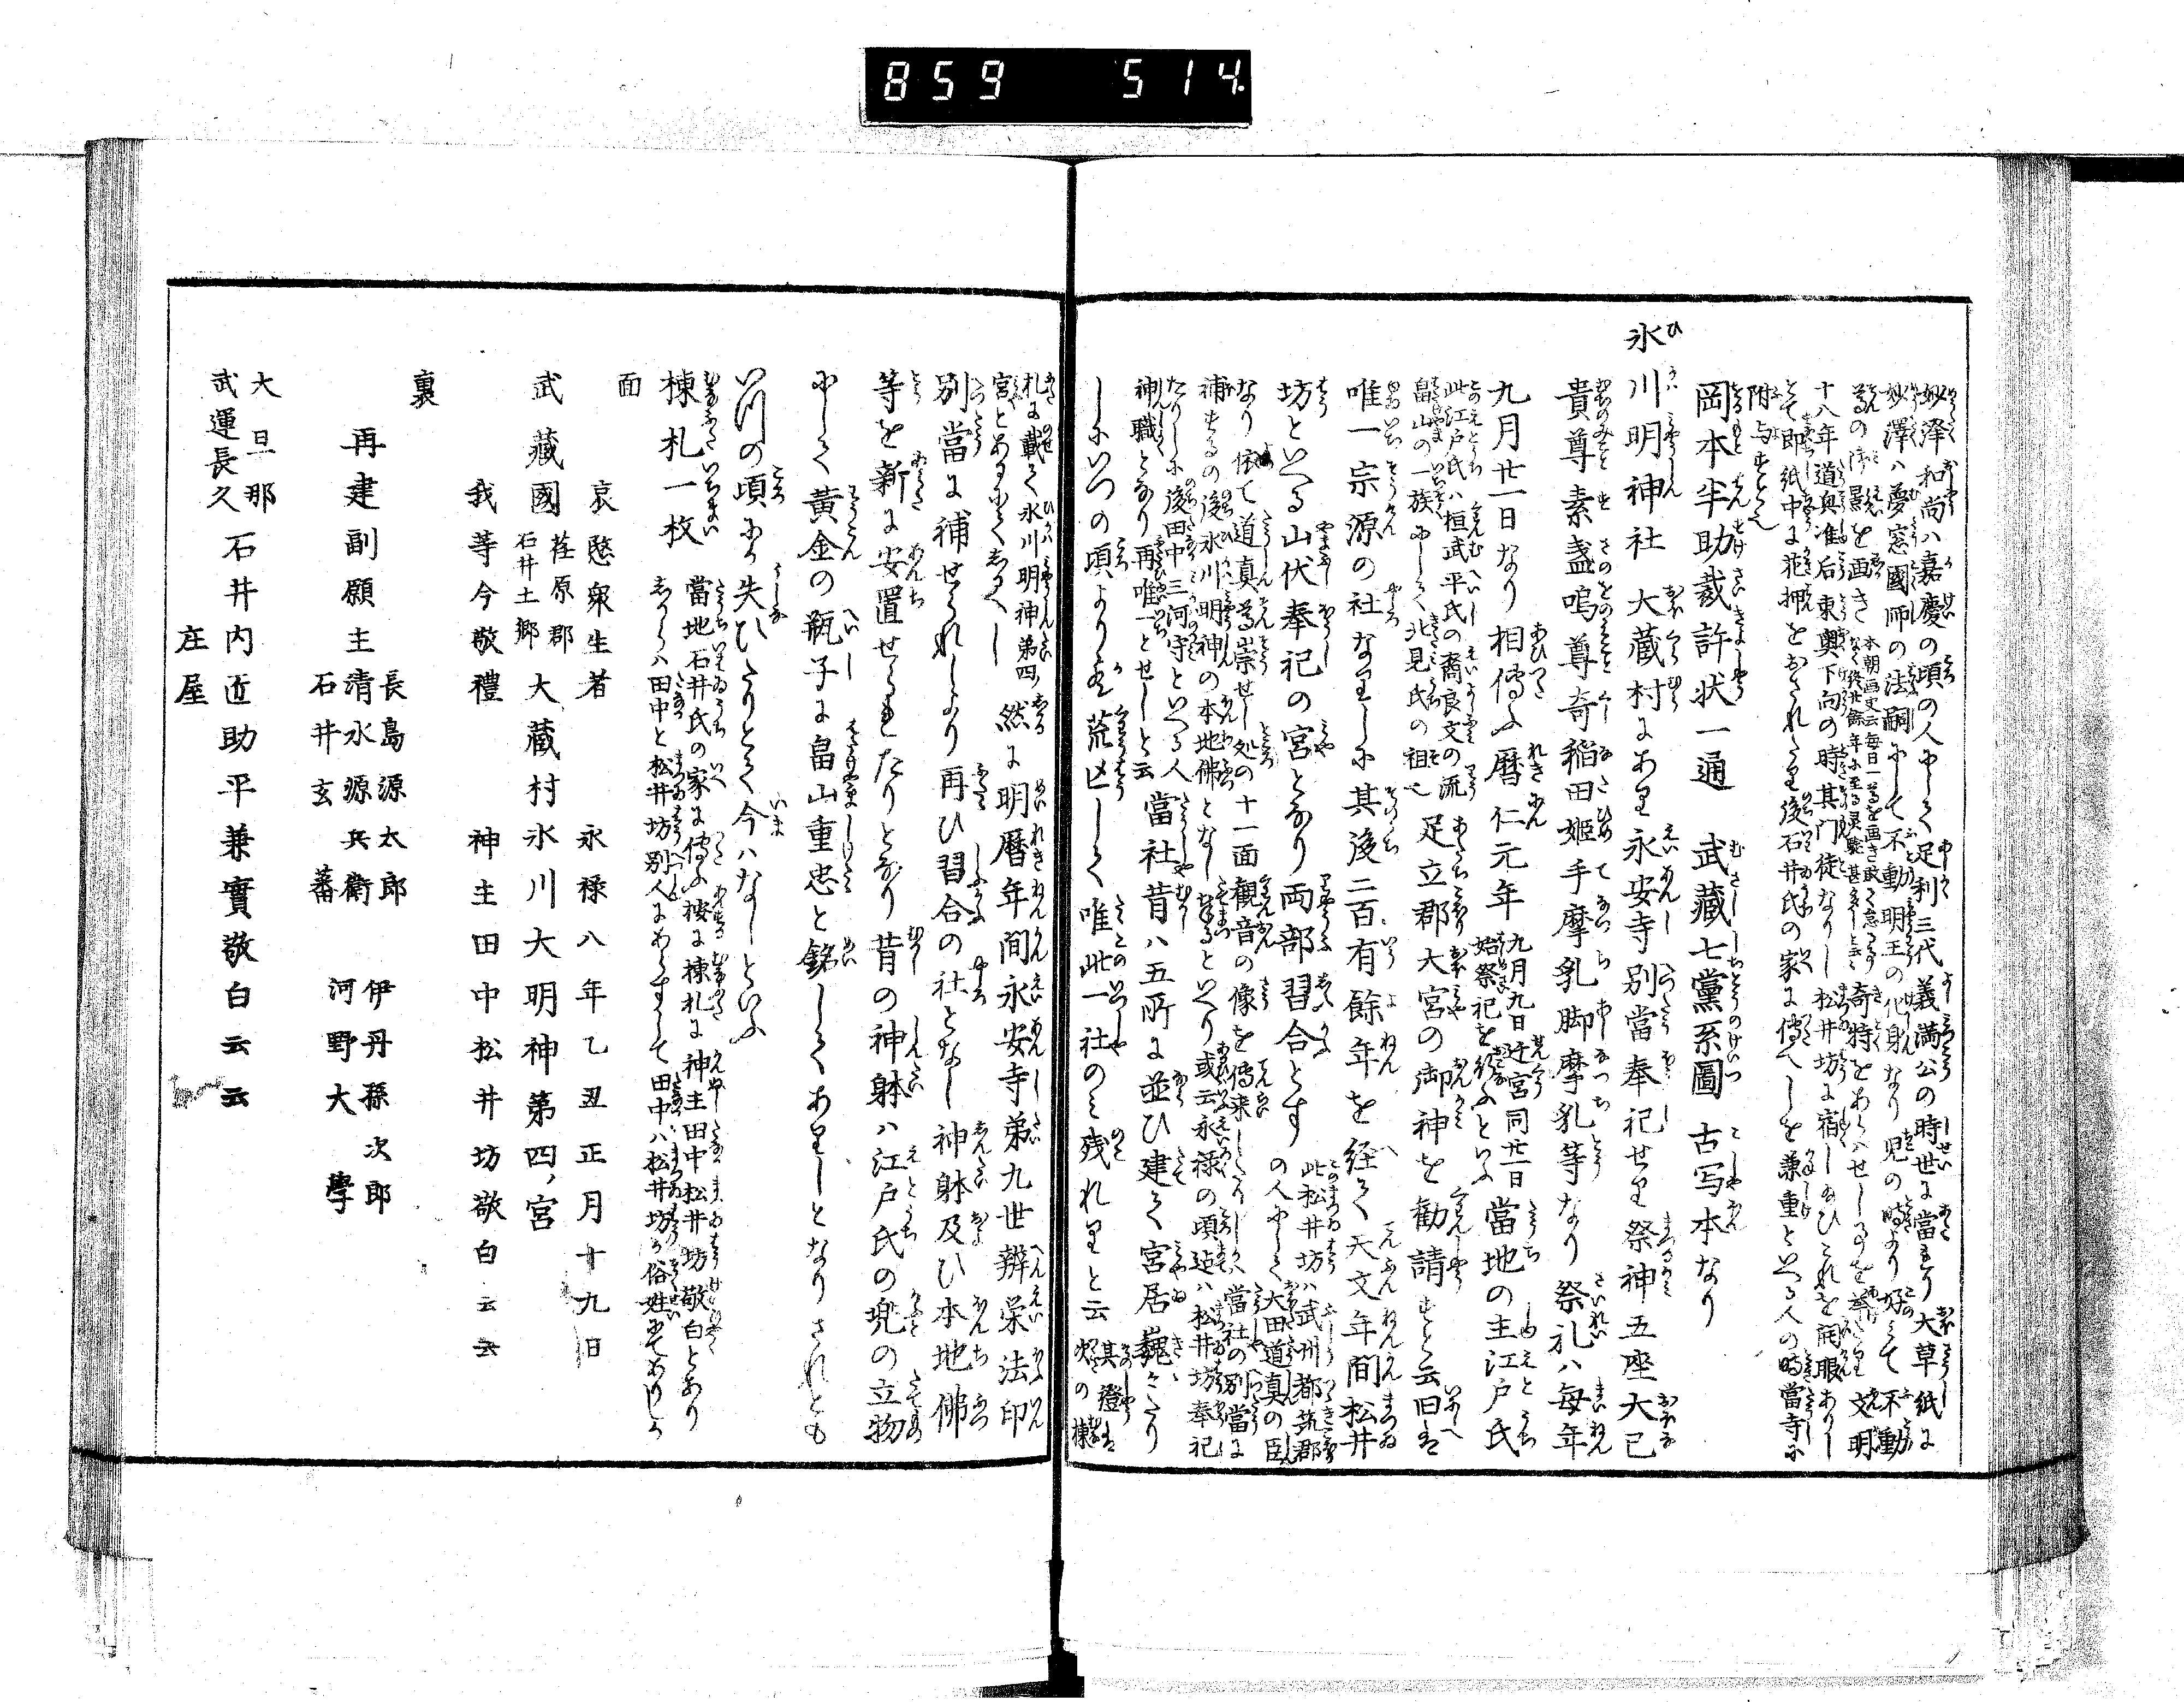 859 514
妙澤和尚ハ嘉慶の頃の人にして足利三代義満公の時世に當れり大草紙に
妙澤ハ夢窓國師の法嗣にして不動明王の化身なり児の時より好みて不動
尊の御影を画き
本朝画史云毎日一尊を画き敢て怠りなく終廿餘年に至る灵驗甚多しとき
奇特をあらハせし事を挙たり文明
十八年道興准后東奥下向の時其門徒なりし松井坊に宿し給ひこれを開眼ありし
とて即紙中に花押をおされたり後石井氏の家に傳へしを兼重といへる人の時當寺に
附与すといへり
岡本半助裁許状一通 武藏七黨系圖 古写本なり
氷川明神社 大蔵村にあり永安寺別當奉祀せり祭神五座大己
貴尊素盞嗚尊奇稲田姫手摩乳脚摩乳等なり祭礼ハ毎年
九月廿一日なり相傳ふ暦仁元年
九月九日迁宮同廿一日
始祭祀を行ふといふ
當地の主江戸氏
此江戸氏ハ桓武平氏の裔良文の流
畠山の一族にして北見氏の祖也
足立郡大宮の御神を勧請すと云旧は
唯一宗源の社なりしに其後二百有餘年を経て天文年間松井
坊といへる山伏奉祀の宮となり両部習合とす
此松井坊ハ武州都筑郡
の人にして大田道真の臣
なり依て道真尊崇せし処の十一面觀音の像を傳来したりしかハ當社の別當に
補するの後氷川明神の本地佛となし奉るといへり或云永禄の頃迠ハ松井坊奉祀
たりしに後田中三河守といへる人
神職となり再唯一とせしと云
當社昔ハ五所に並ひ建て宮居巍々たり
しにいつの頃よりか荒凶して唯此一社のミ残れりと云
其證は
次の棟
札に載て氷川明神第四ノ
宮とあるにてしるへし
然に明暦年間永安寺第九世辨栄法印
別當に補せられしより再ひ習合の社となし神躰及ひ本地佛
等を新に安置せられたりとなり昔の神躰ハ江戸氏の兜の立物
にして黄金の瓶子に畠山重忠と銘してありしとなりされとも
いつの頃にか失ひたりとて今ハなしといふ
棟札一枚
當地石井氏の家に傳ふ按に棟札に神主田中松井坊敬白とあり
しからハ田中と松井坊別人にあらすして田中ハ松井坊の俗姓にてありしか
面
哀愍衆生者 永禄八年乙丑正月十九日
武藏國
荏原郡
石井土郷
大蔵村氷川大明神第四ノ宮
我等今敬禮 神主田中松井坊敬白云云
裏
再建副願主
長島源太郎
清水源兵衛
石井玄蕃
伊丹孫次郎
河野大學
大旦那
武運長久
石井内匠助平兼實敬白云云
庄屋